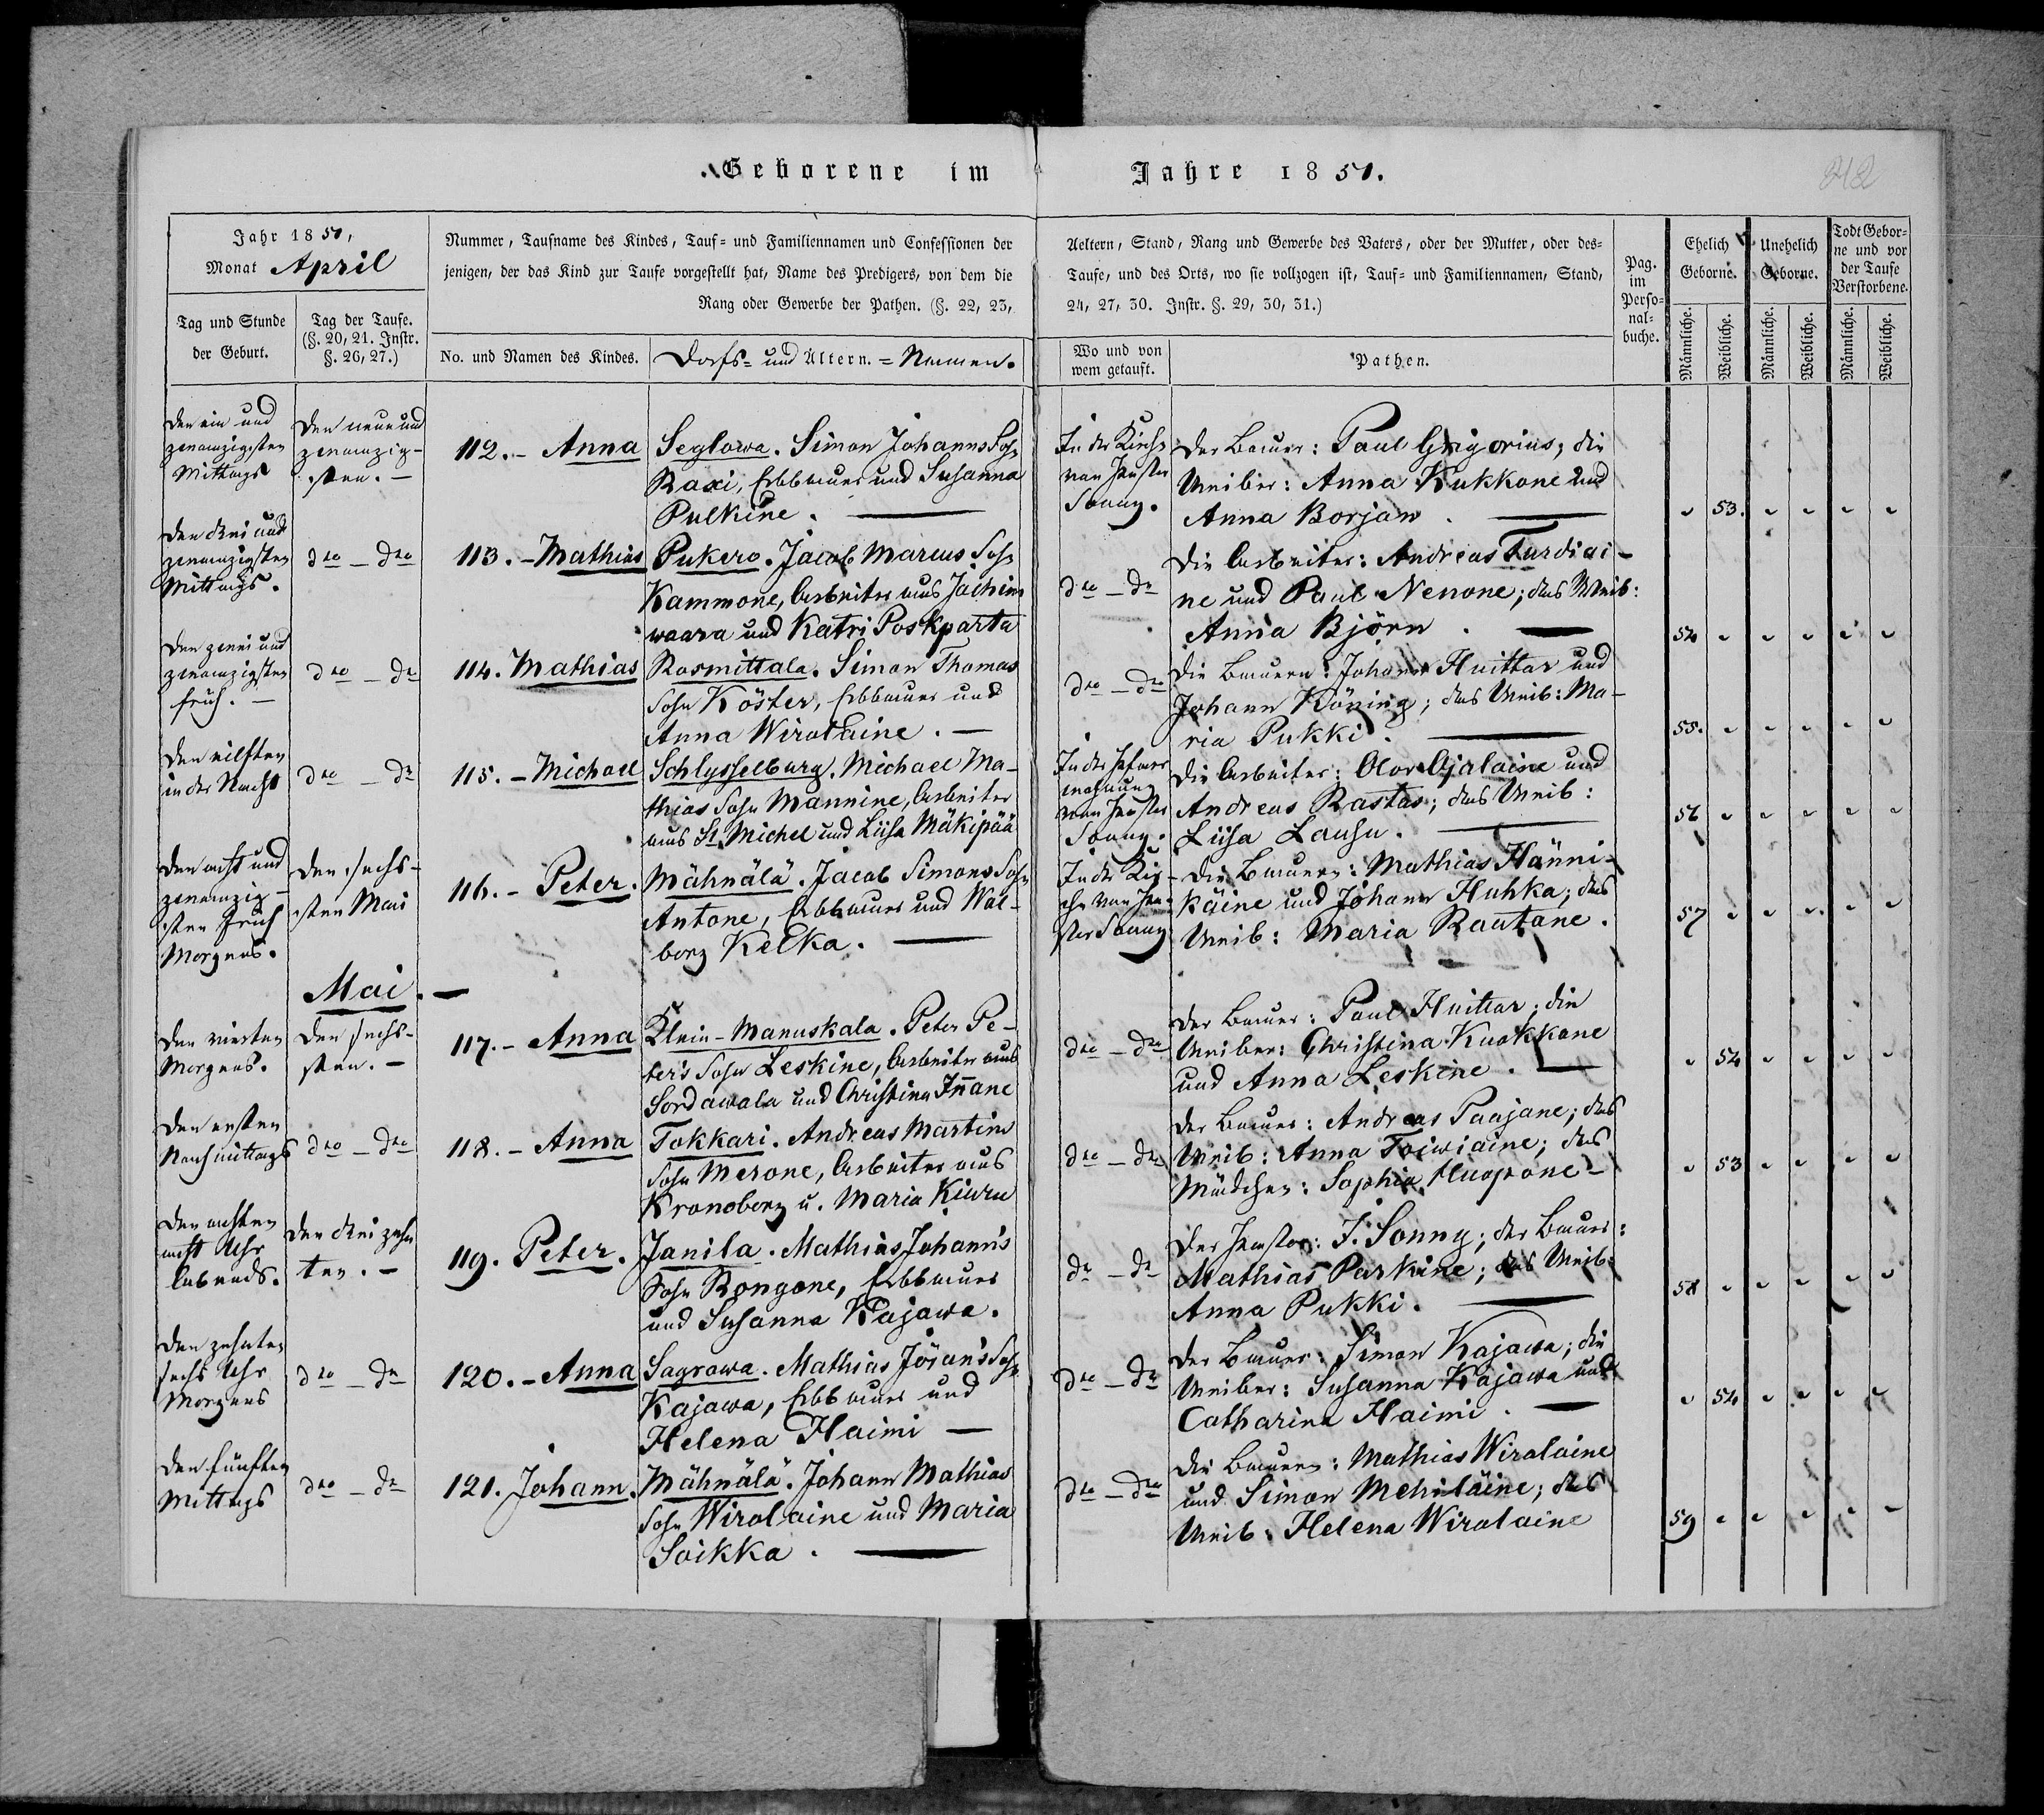 Geborene im Jahre 1851.
242
Jahr 1851,
Monat April
Tag und Stunde
der Geburt.
Tag der Taufe.
(§. 20, 21. Instr.
§. 26, 27.)
Nummer, Taufname des Kindes, Tauf- und Familiennamen und Confessionen der
jenigen, der das Kind zur Taufe vorgestellt hat, Name des Predigers, von dem die
Rang oder Gewerbe der Pathen. (§. 22, 23,
No. und Namen des Kindes.
Dorfs- und Altern.-Namen.
Aeltern, Stand, Rang und Gewerbe des Vaters, oder der Mutter, oder des-
Taufe, und des Orts, wo sie vollzogen ist, Tauf- und Familiennamen, Stand,
24, 27, 30. Instr. §. 29, 30, 31.)
Wo und von
wem getauft.
Pathen.
Pag.
im
Perso-
nal-
buche.
Ehelich
Geborne.
Unehelich
Geborne.
Todt Gebor-
ne und vor
der Taufe
Verstorbene.
Männliche.
Weibliche.
Männliche.
Weibliche.
Männliche.
Weibliche.
Den ein und
zwanzigsten
Mittags
Den neun und
zwanzig-
sten. –
112. – Anna
Seglowa. Simon Johanns Sohn
Raxi, Erbbauer und Susanna
Pulkine. —
In der Kirche
von Pastor
Sonny.
Der Bauer: Paul Grigorius; die
Weiber: Anna Kukkone und
Anna Borjan. —
" 53. " " " "
Den drei und
zwanzigsten
Mittags.
dto – dto
113. – Mathias
Pukero. Jacob Marcus Sohn
Kammone, Arbeiter aus Jachim
waara und Katri Poskparta
dto – do
Die Arbeiter: Andreas Turdiai-
ne und Paul Nenone; das Weib:
Anna Björn. —
54 " " " " "
Den zwei und
zwanzigsten
früh. –
dto – do
114. Mathias
Rosmittala. Simon Thomas
Sohn Köster, Erbbauer und
Anna Wirolaine. –
dto – dto
Die Bauern: Johann Huittar und
Johann Köning; das Weib: Ma-
ria Pukki. —
55. " " " " "
Den eilften
in der Nacht
dto – do
115. – Michael
Schlysselburg. Michael Ma-
thias Sohn Mannine, Arbeiter
aus St. Michel und Liisa Mäkipää
von Pastor
Sonny.
Die Arbeiter:
Andreas Rastas; das Weib:
Liisa Lausu. —
56 " " " " "
Den acht und
zwanzig-
sten Früh
Morgens.
Den sechs-
sten Mai
116. – Peter.
Mähnälä. Jacob Simons Sohn
Antone, Erbbauer und Wal-
borg Kelka. —
In der Kir-
che von Pa-
stor Sonny
Die Bauern: Mathias Hänni-
käine und Johann Huhka; das
Weib: Maria Rautane.
57 " " " " "
Mai. —
Den vierten
Morgens.
Den sechs-
sten. –
117. – Anna
Klein-Manuskala. Peter Pe-
ter's Sohn Leskine, Arbeiter aus
Sordawala und Christina Innane
dto – dto
Der Bauer: Paul Huittar; die
Weiber: Christina Kuokkane
und Anna Leskine. —
" 52 " " " "
Den ersten
Nachmittags
dto – dto
118. – Anna
Tokkari. Andreas Martins
Sohn Merone, Arbeiter aus
Kronoborg u. Maria Kiuru
dto – dto
Der Bauer: Andreas Paajane; das
Weib: Anna Toiwiaine; das
Mädchen: Sophia Huopone –
" 53 " " " "
Den achten
acht Uhr
Abends.
Den drei zehn
ten. –
119. Peter.
Janila. Mathias Johann's
Sohn Rongone, Erbbauer
und Susanna Kajawa.
do – do
Der Pastor: J. Sonny; der Bauer:
Mathias Parkine; das Weib:
Anna Pukki. —
58 " " " " "
Den zehnten
sechs Uhr
Morgens
dto – do
120. – Anna
Sagrowa. Mathias Jöran's Sohn
Kajawa, Erbbauer und
Helena Haimi —
dto – do
Der Bauer: Simon Kajawa; die
Weiber: Susanna Kajawa und
Catharina Haimi. —
" 54 " " " "
Den fünften
Mittags
dto – do
121. Johann.
Mähnälä. Johann Mathias
Sohn Wirolaine und Maria
Soikka. —
dto – dto
Die Bauern: Mathias Wirolaine
und Simon Mehiläine; das
Weib: Helena Wirolaine
59 " " " " "